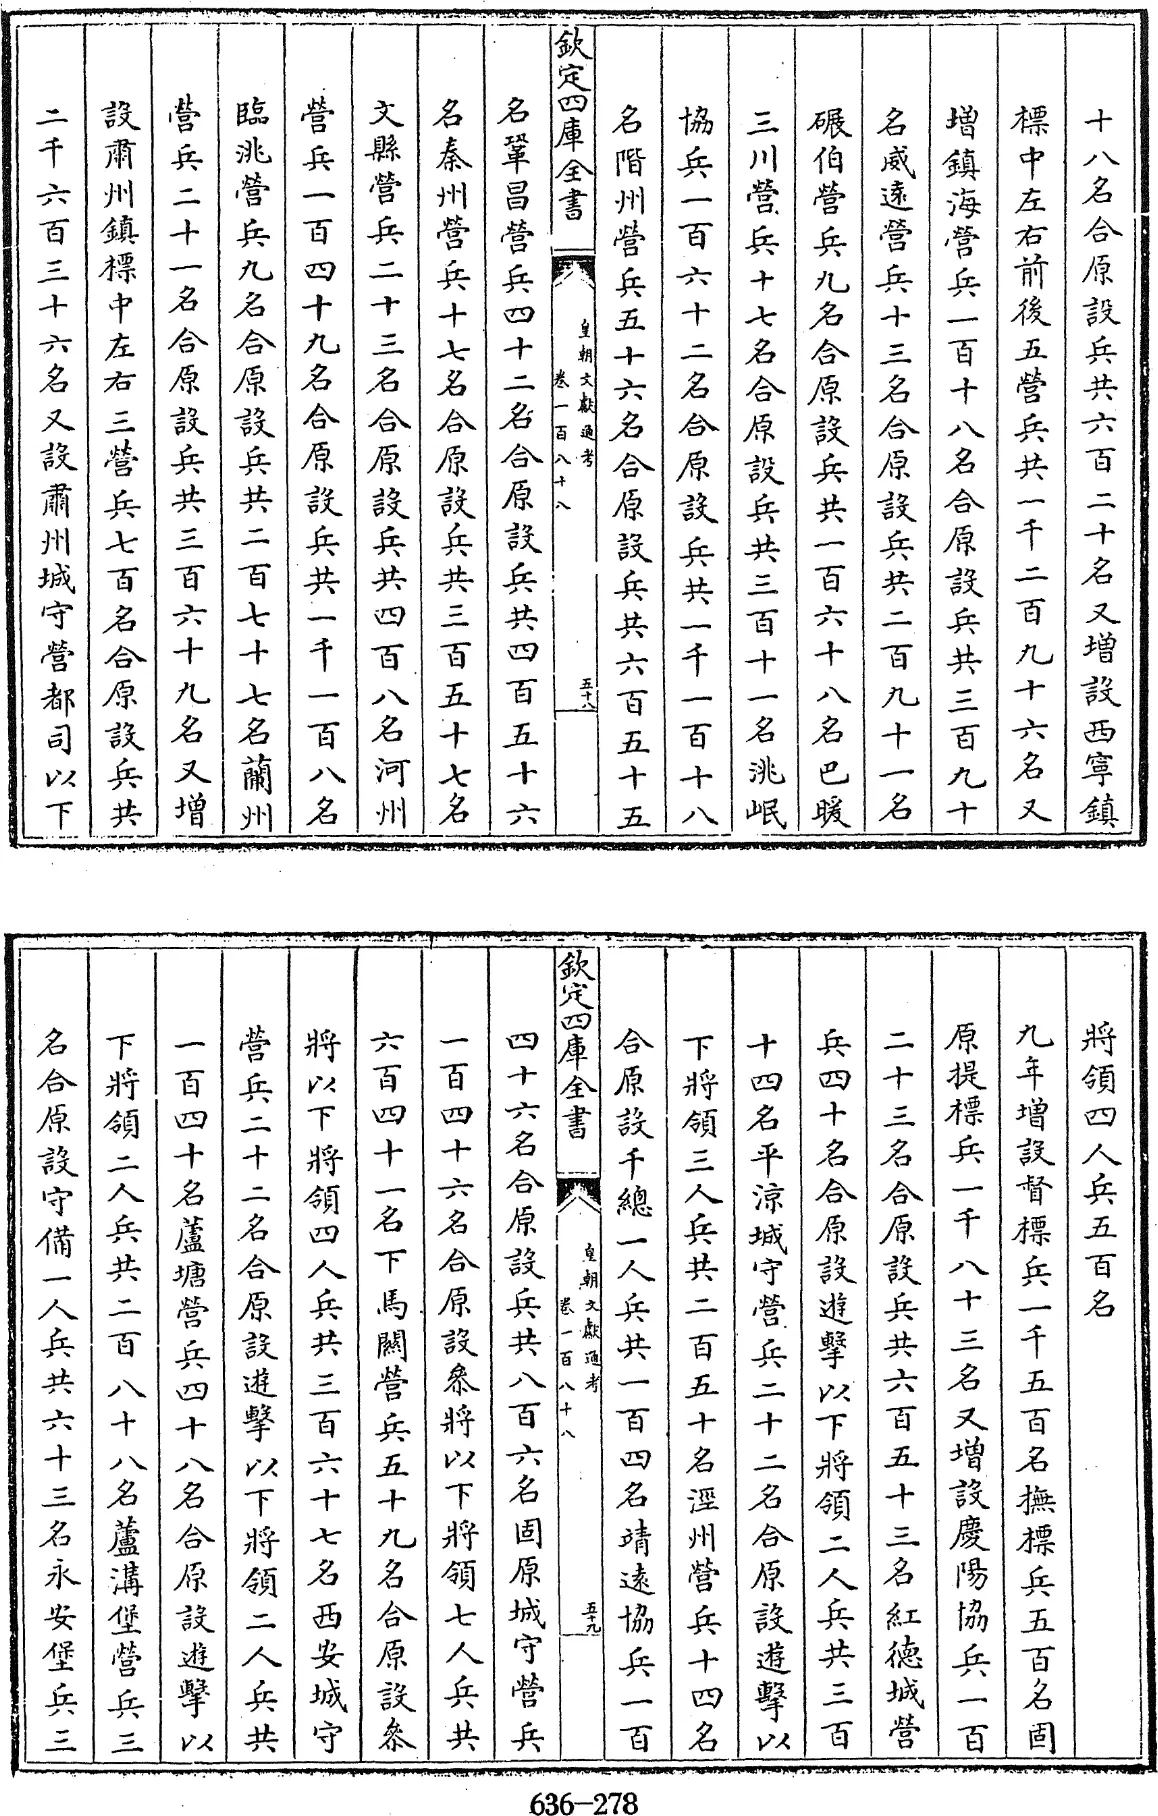 十八名合原設兵共六百二十名又增設西寧鎮
標中左右前後五營兵共一千二百九十六名又
增鎮海營兵一百十八名合原設兵共三百九十
名威遠營兵十三名合原設兵共二百九十一名
碾伯營兵九名合原設兵共一百六十八名巴暖
三川營兵十七名合原設兵共三百十一名洮岷
協兵一百六十二名合原設兵共一千一百十八
名階州營兵五十六名合原設兵共六百五十五
欽定四庫全書
皇朝文獻通考
卷一百八十八
五十八
名鞏昌營兵四十二名合原設兵共四百五十六
名秦州營兵十七名合原設兵共三百五十七名
文縣營兵二十三名合原設兵共四百八名河州
營兵一百四十九名合原設兵共一千一百八名
臨洮營兵九名合原設兵共二百七十七名蘭州
營兵二十一名合原設兵共三百六十九名又增
設肅州鎮標中左右三營兵七百名合原設兵共
二千六百三十六名又設肅州城守營都司以下
將領四人兵五百名
九年增設督標兵一千五百名撫標兵五百名固
原提標兵一千八十三名又增設慶陽協兵一百
二十三名合原設兵共六百五十三名紅德城營
兵四十名合原設遊擊以下將領二人兵共三百
十四名平涼城守營兵二十二名合原設遊擊以
下將領三人兵共二百五十名涇州營兵十四名
合原設千總一人兵共一百四名靖遠協兵一百
欽定四庫全書
皇朝文獻通考
卷一百八十八
五十九
四十六名合原設兵共八百六名固原城守營兵
一百四十六名合原設參將以下將領七人兵共
六百四十一名下馬關營兵五十九名合原設參
將以下將領四人兵共三百六十七名西安城守
營兵二十二名合原設遊擊以下將領二人兵共
一百四十名蘆塘營兵四十八名合原設遊擊以
下將領二人兵共二百八十八名蘆溝堡營兵三
名合原設守備一人兵共六十三名永安堡兵三
636-278